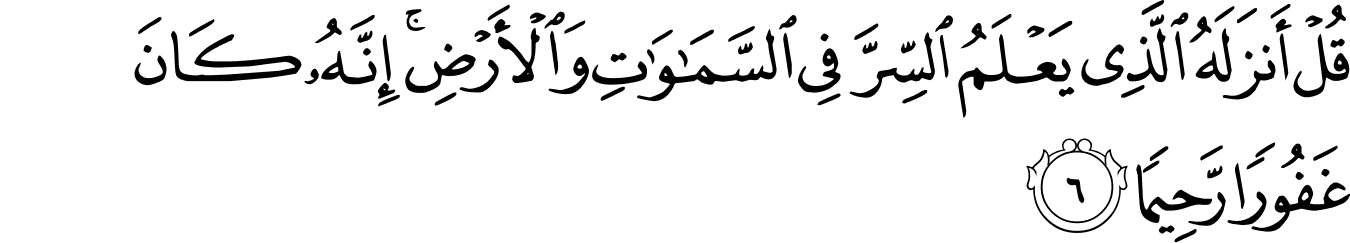 قُلْ أَنزَلَهُ ٱلَّذِى يَعْلَمُ ٱلسِّرَّ فِى ٱلسَّمَـٰوَٰتِ وَٱلْأَرْضِ ۚ إِنَّهُۥ كَانَ
غَفُورًا رَّحِيمًا ٦